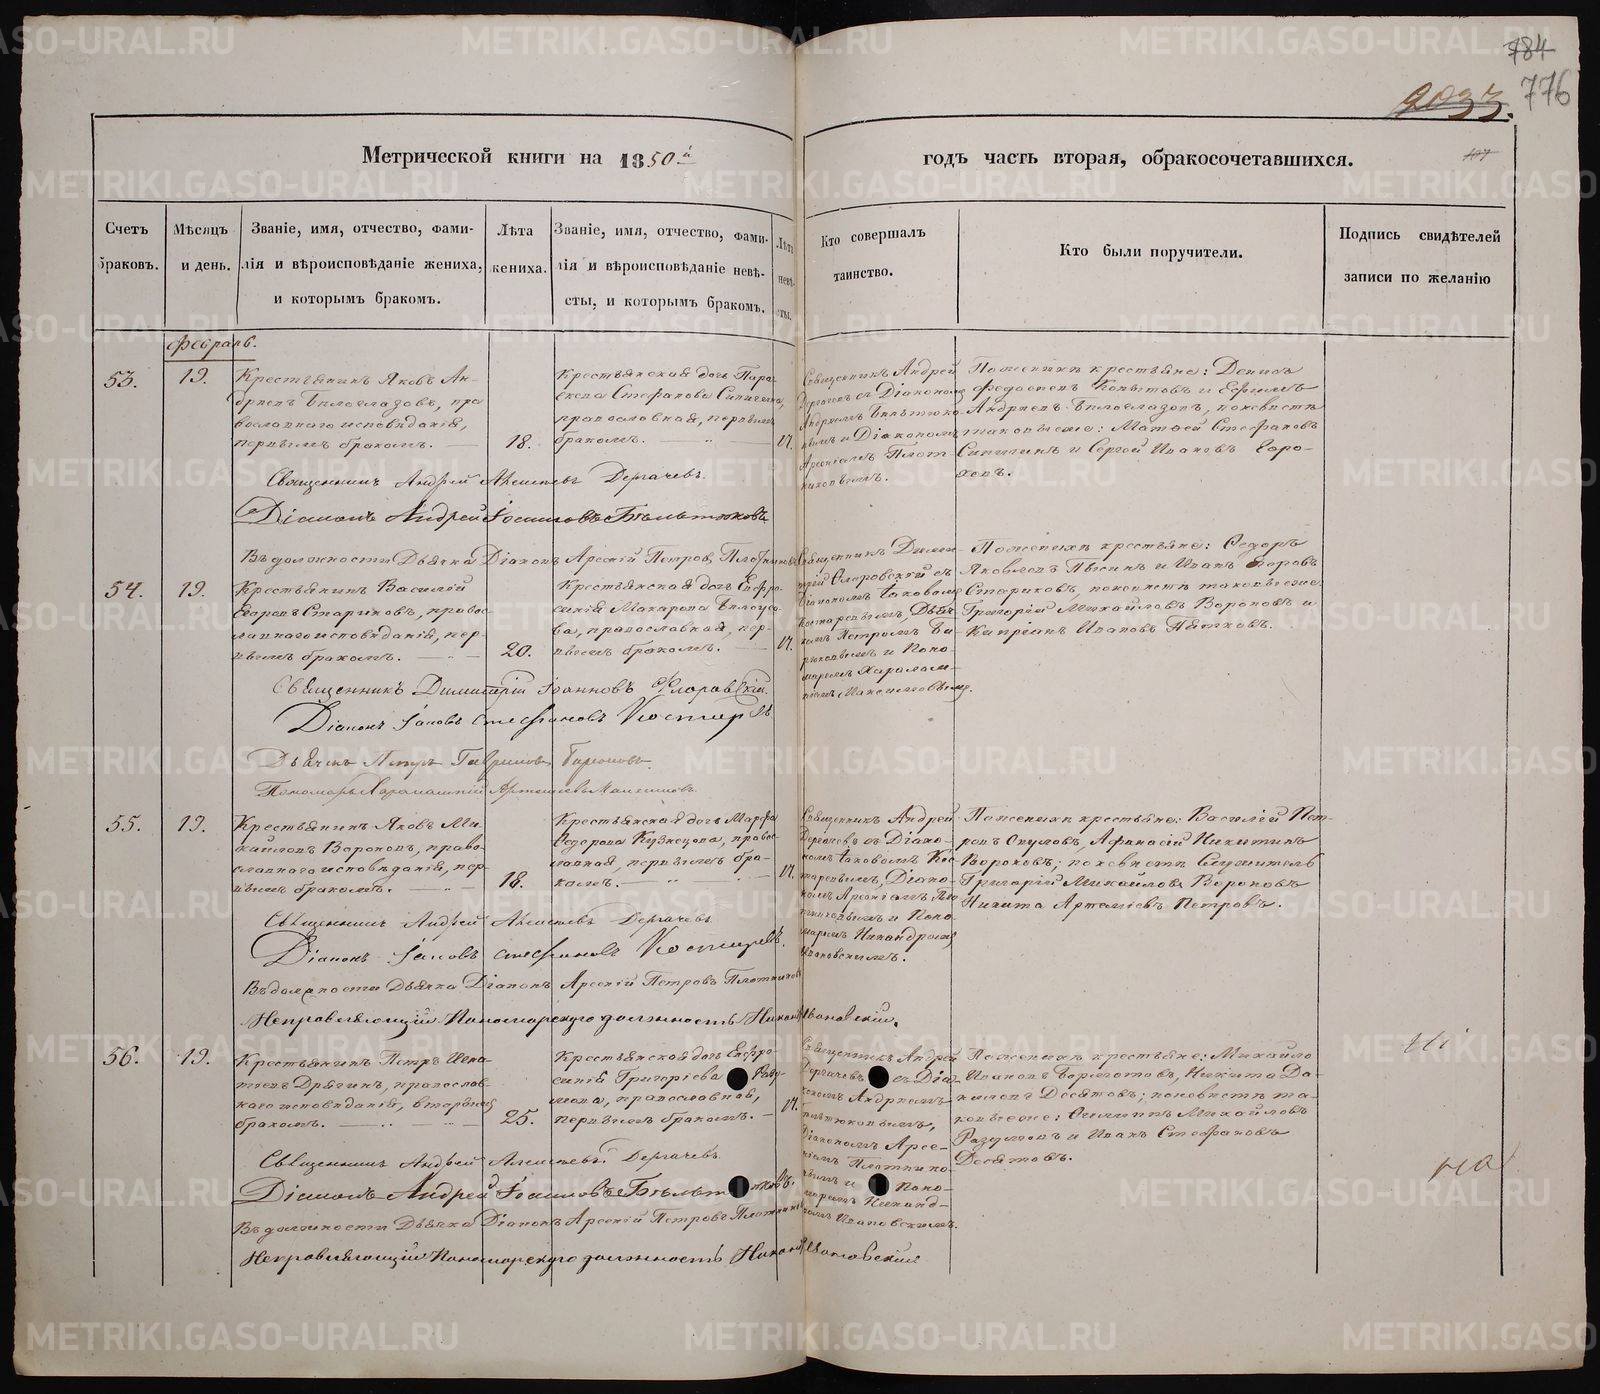 784
776
2033.
Метрической книги на 1850й годъ часть вторая, обракосочетавшихся.
Счетъ браковъ.
Мѣсяцъ и день.
Званіе, имя, отчество, фами-
лія и вѣроисповѣданіе жениха,
и которымъ бракомъ.
Лѣта
жениха.
Званіе, имя, отчество, фами-
лія и вѣроисповѣданіе невѣ-
сты, и которымъ бракомъ.
Лѣта
невѣ-
сты.
Кто совершалъ
таинство.
Кто были поручители.
Подпись свидѣтелей
записи по желанію
Февраль.
53.
19.
Крестьянинъ Яковъ Ан-
дреевъ Бѣлоглазовъ, пра
вославнаго исповѣданія,
первымъ бракомъ.
18.
Крестьянская дочь Пара-
скева Стефанова Сипигина,
православная, первымъ
бракомъ.
17.
Священникъ Андрей
Дергачевъ съ Діакономъ
Андреемъ Бѣльтюко-
вымъ и Діакономъ
Арсеніемъ Плот-
никовымъ.
По женихѣ крестьяне: Денисъ
Федосеевъ Копытовъ и Ефимъ
Андреевъ Бѣлоглазовъ, по невѣстѣ
таковые же: Матвей Стефановъ
Сипигинъ и Сергей Ивановъ
Священникъ Андрей Алексѣевъ Дергачевъ.
Діаконъ Андрей Іоанновъ Бѣльтюковъ
Въ должности Дьячка Діаконъ Арсеній Петровъ Плотниковъ
54.
19.
Крестьянинъ Василій
Егоровъ Стариковъ, правос-
лавнаго исповѣданія, пер-
вымъ бракомъ.
20.
Крестьянская дочь Евфро-
синія Макарова Бѣлоусо-
ва, православная, пер-
вымъ бракомъ.
17.
Священникъ Дими-
трій Флоровскій съ
Діакономъ Іаковомъ
Костаревымъ, Дьяч-
комъ Петромъ
и Поно-
маремъ Харалам-
піемъ Максимовымъ.
По женихѣ крестьяне: Ѳедоръ
Яковлевъ и Иванъ Егоровъ
Стариковъ, по невѣстѣ таковые же:
Григорій Михайловъ Вороновъ и
Кипріанъ Ивановъ Пятковъ.
Священникъ Димитрій Іоанновъ Флоровскій.
Діаконъ Іаковъ Стефановъ Костаревъ
Дьячекъ Петръ Гавриловъ
Пономарь Харалампій Максимовъ.
55.
19.
Крестьянинъ Яковъ Ми-
хайловъ Вороновъ, право-
славнаго исповѣданія, пер-
вымъ бракомъ.
18.
Крестьянская дочь Марфа
Ѳедорова Кузнецова, право-
славная, первымъ бра-
комъ.
17.
Священникъ Андрей
Дергачевъ съ Діако-
номъ Іаковомъ Кос-
таревымъ, Діако-
номъ Арсеніемъ Пло-
тниковымъ и Поно-
маремъ Никандромъ
Ивановскимъ.
По женихѣ крестьяне: Василій Пет-
ровъ Окуловъ, Афанасій Никитинъ
Вороновъ; по невѣстѣ Служитель
Григорій Михайловъ Вороновъ
Никита Артеміевъ Петровъ.
Священникъ Андрей Алексѣевъ Дергачевъ.
Діаконъ Іаковъ Стефановъ Костаревъ.
Въ должности Дьячка Діаконъ Арсеній Петровъ Плотниковъ
Исправляющій Пономарскую должность Никандръ Ивановскій.
56.
19.
Крестьянинъ Петръ Игна-
тьевъ Дрягинъ, православ-
наго исповѣданія, вторымъ
бракомъ.
25.
Крестьянская дочь Евфро-
синія Григоріева Разу-
мова, православная,
первымъ бракомъ.
17.
Священникъ Андрей
Дергачевъ съ Діа-
кономъ Андреемъ
Бѣльтюковымъ,
Діакономъ Арсе-
ніемъ Плотнико-
вымъ и Поно-
маремъ Никанд-
ромъ Ивановскимъ.
По женихѣ крестьяне: Михайло
Ивановъ Никита Да-
ниловъ Десятовъ; по невѣстѣ та-
ковые же: Михайловъ
Разумовъ и Иванъ Стефановъ
Десятовъ.
Священникъ Андрей Алексѣевъ Дергачевъ.
Діаконъ Андрей Іоанновъ Бѣльтюковъ.
Въ должности Дьячка Діаконъ Арсеній Петровъ Плотниковъ
Исправляющій Пономарскую должность Никандръ Ивановскій
METRIKI.GASO-URAL.RU